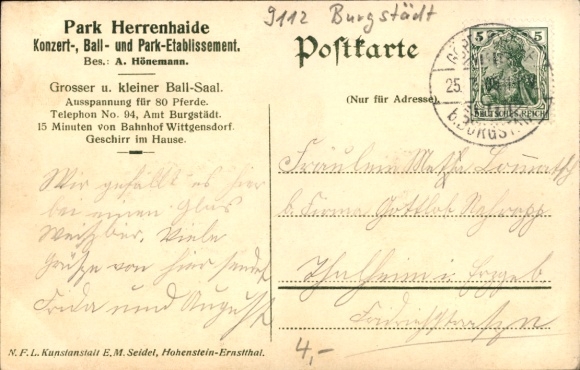 9112 Burgstädt
Park Herrenhaide
Konzert-, Ball- und Park-Etablissement.
Bes.: A. Hönemann.
Grosser u. kleiner Ball-Saal.
Ausspannung für 80 Pferde.
Telephon No. 94, Amt Burgstädt.
15 Minuten von Bahnhof Wittgensdorf.
Geschirr im Hause.
Postkarte
(Nur für Adresse)
5 5
DEUTSCHES REICH
25.
b. BURGSTÄDT
Wir gefällt es hier
bei einem Glas
Weißbier. Viele
Grüße von hier sendet
Frida und August
Fräulein
b. Firma Gottlob
Thalheim i. Erzgeb.
4,-
N. F. L. Kunstanstalt E. M. Seidel, Hohenstein-Ernstthal.